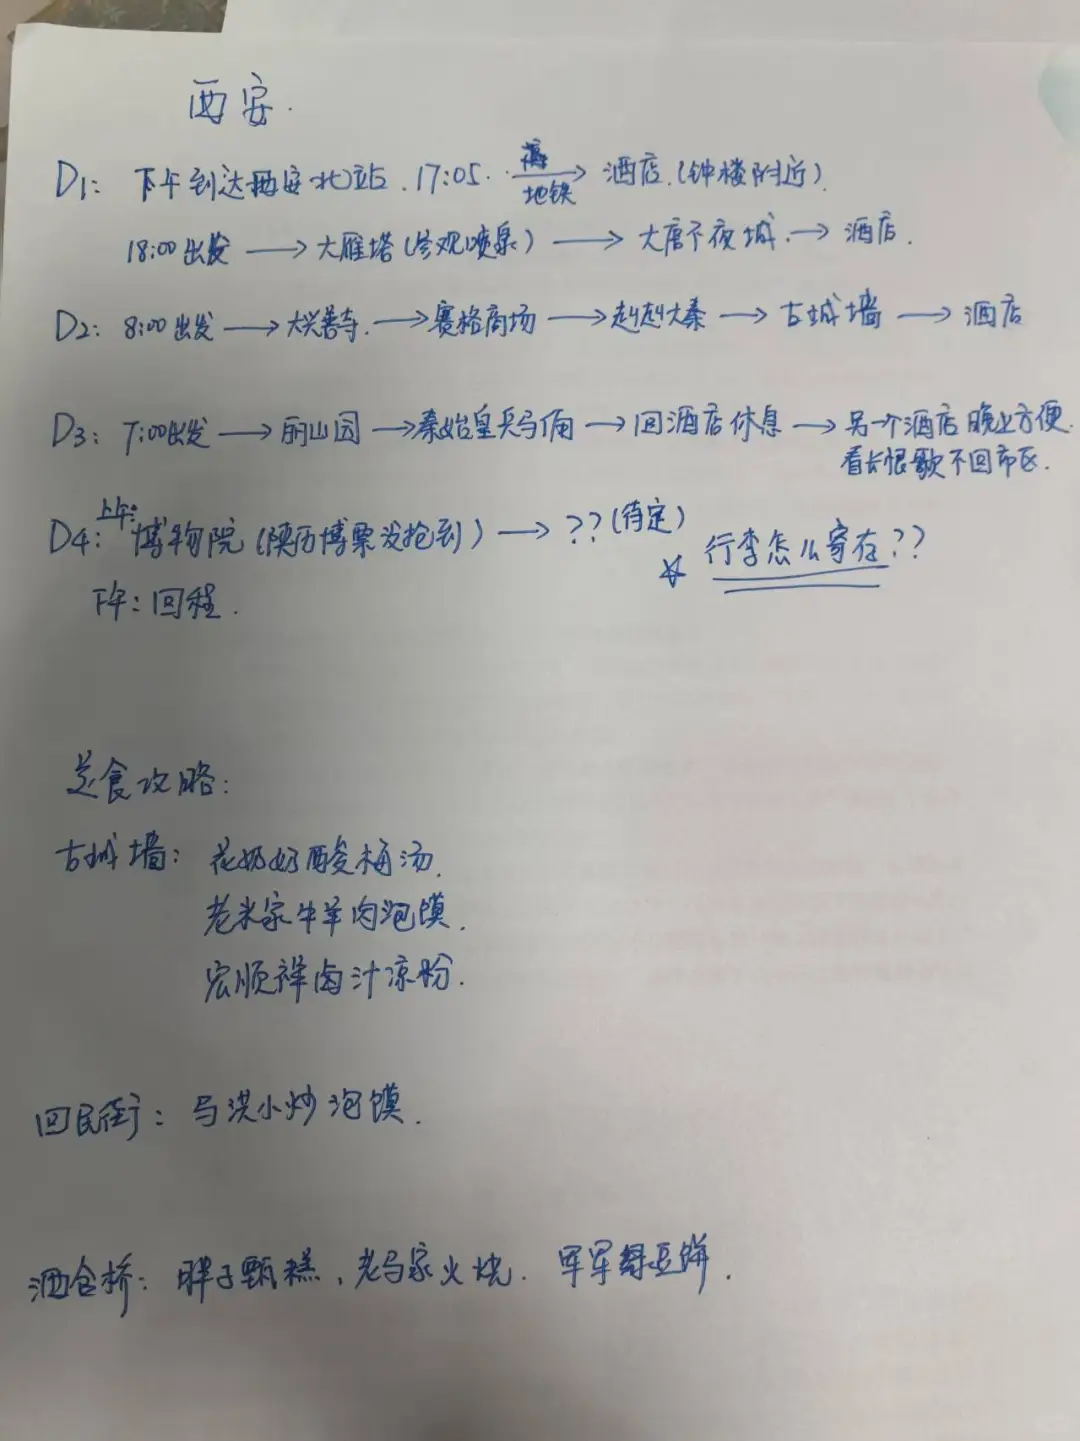 西安.
D1: 下午到达西安北站.17:05. 地铁→ 酒店.(钟楼附近).
18:00出发 → 大雁塔(参观喷泉) → 大唐不夜城.→ 酒店.
D2: 8:00出发 → 大兴善寺. → 赛格商场 → 赳赳大秦 → 古城墙 → 酒店
D3: 7:00出发 → 丽山园 → 秦始皇兵马俑 → 回酒店休息 → 另一个酒店 晚上方便.
看长恨歌不回市区.
D4: 上午: 博物院(陕历博票没抢到) → ??(待定)
☆ 行李怎么寄存??
下午: 回程.
美食攻略:
古城墙: 花奶奶酸梅汤.
老米家牛羊肉泡馍.
宏顺祥卤汁凉粉.
回民街: 马洪小炒泡馍.
洒金桥: 胖子甑糕、老马家火烧. 军军绿豆饼.